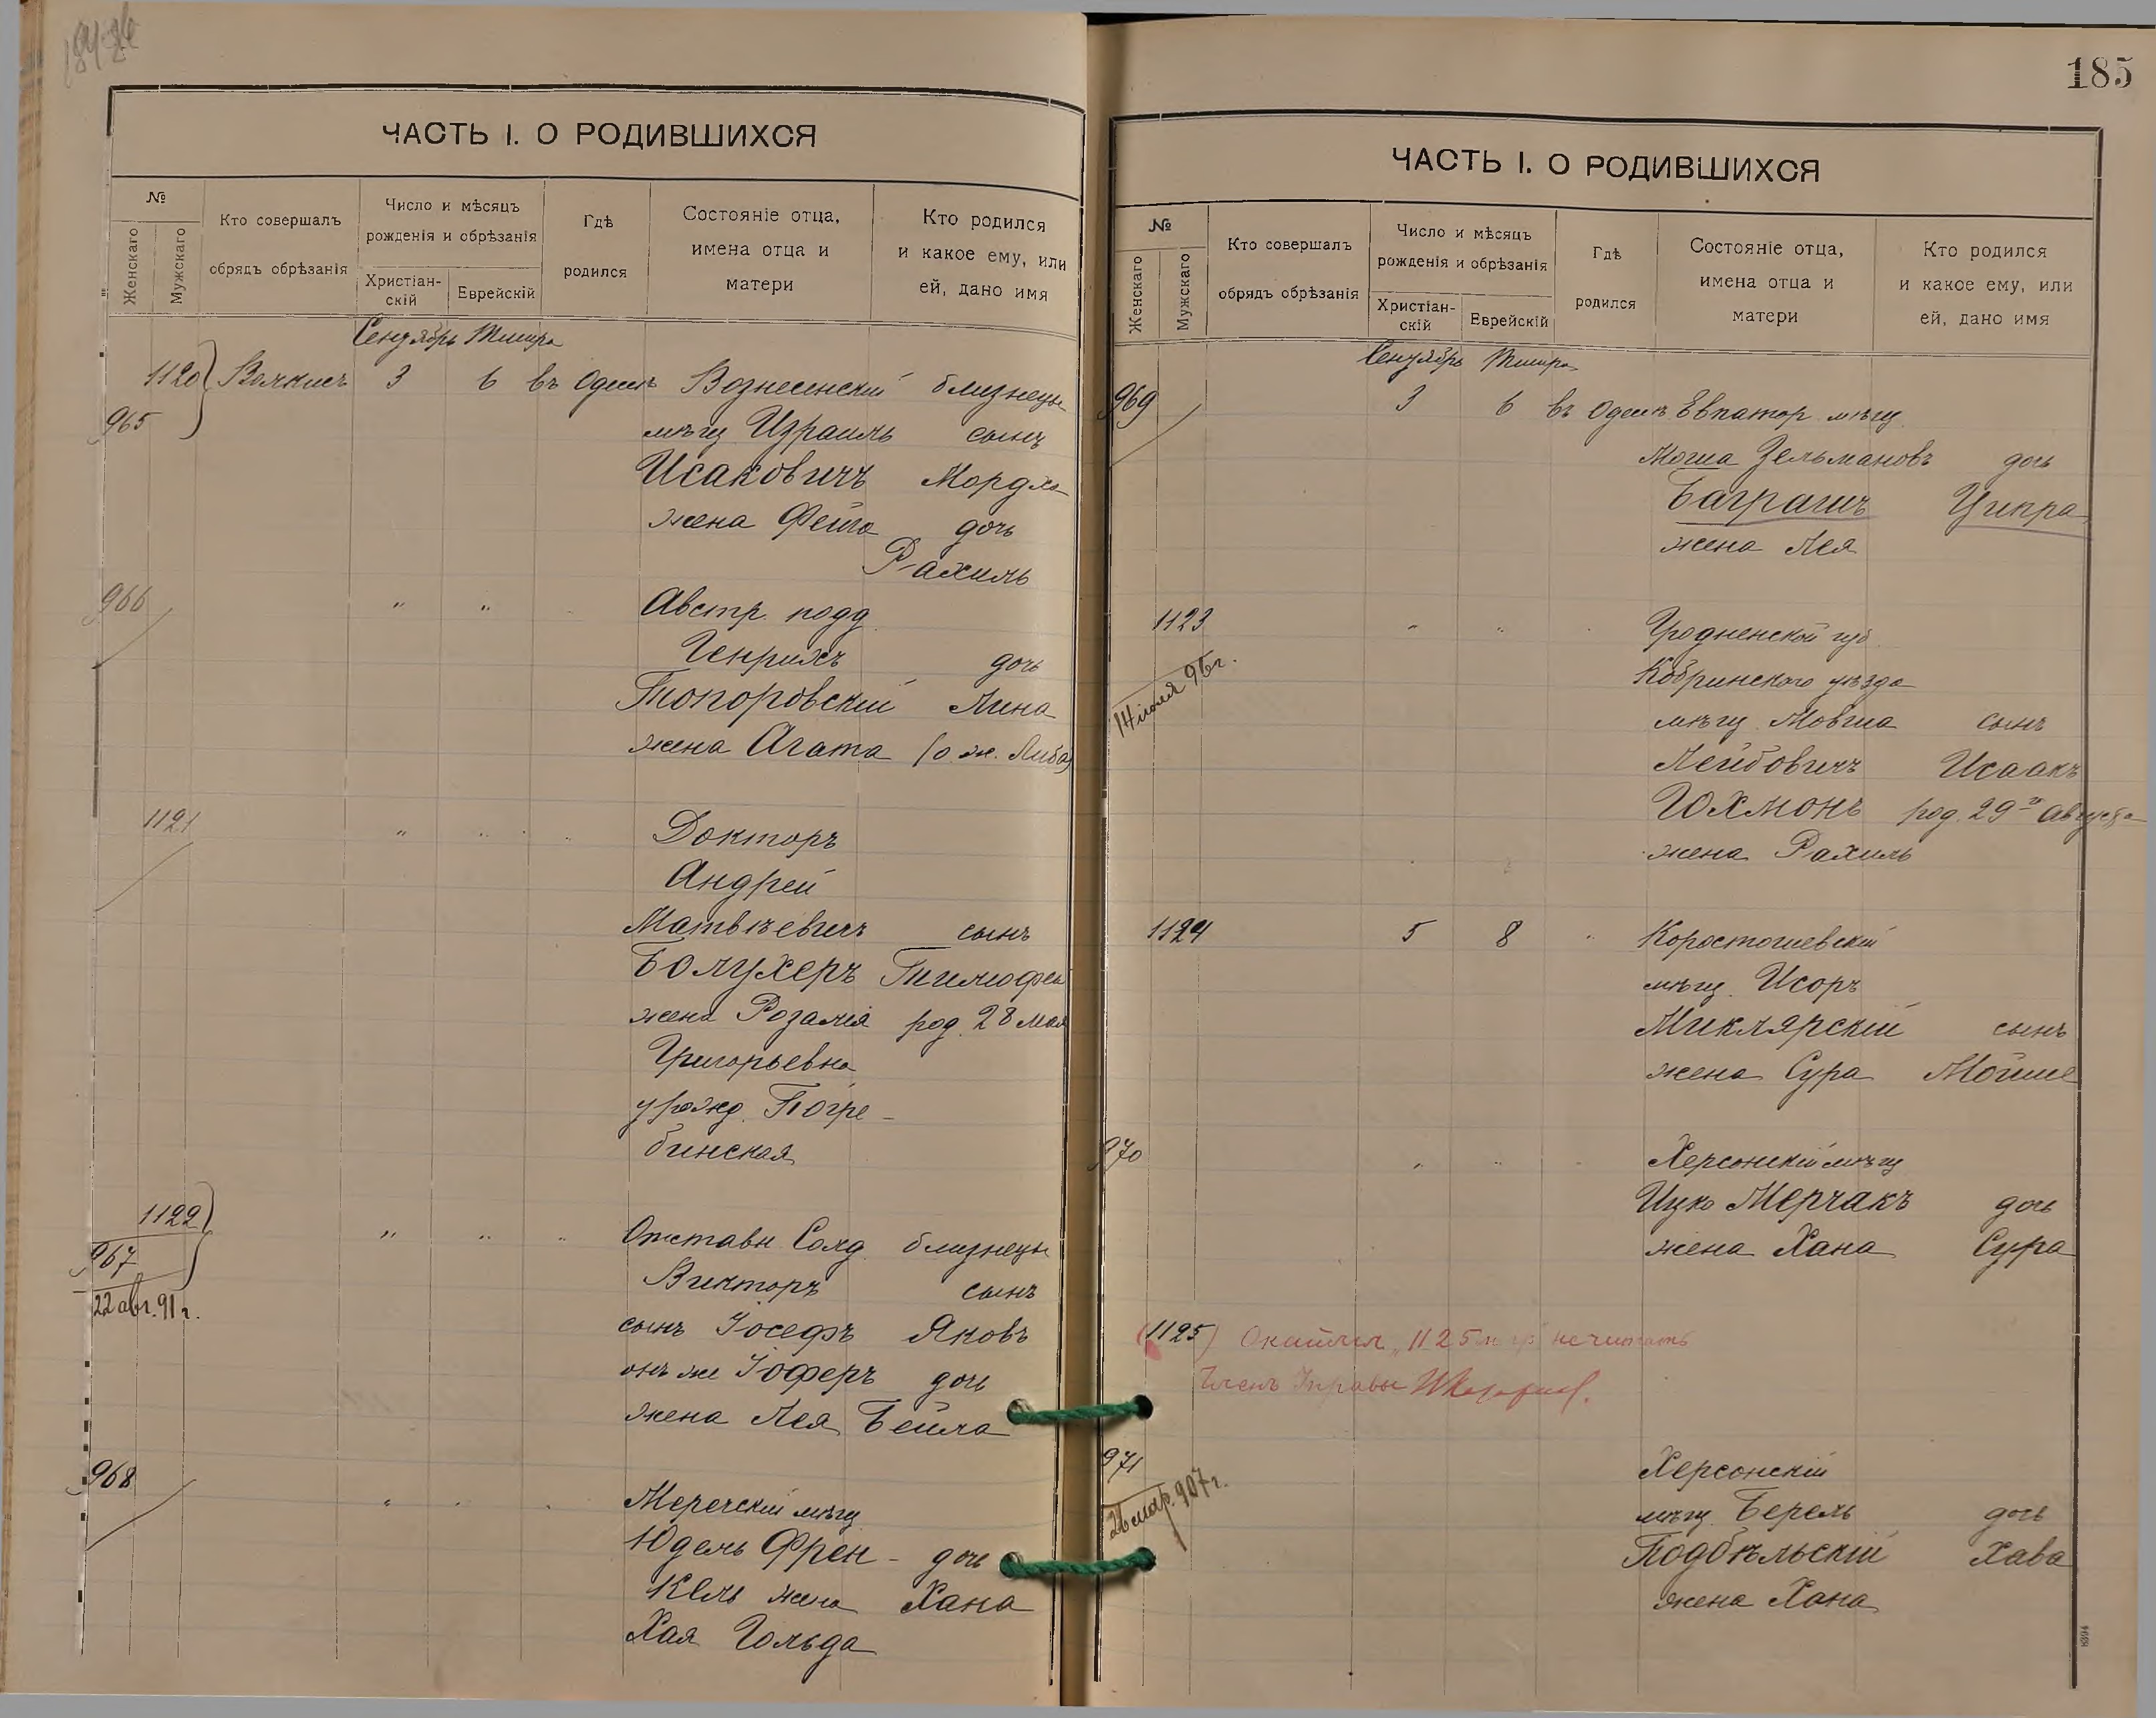 185
ЧАСТЬ I. О РОДИВШИХСЯ
№
Женскаго
Мужскаго
Кто совершалъ
обрядъ обрѣзанія
Число и мѣсяцъ
рожденія и обрѣзанія
Христіан-
скій
Еврейскій
Гдѣ
родился
Состояніе отца,
имена отца и
матери
Кто родился
и какое ему, или
ей, дано имя
Сентябрь Тишра
1120 3 6 въ Одессѣ Вознесенскій близнецы
965 мѣщ Израиль сынъ
Исаковичъ Мордхо
жена Фейга дочь
Рахиль
966 " " Австр. подд
Генрихъ дочь
Топоровскій Лина
жена Агата (о же Либа)
1121 " " Докторъ
Андрей
Матвѣевичъ сынъ
Болухеръ Тимофей
жена Розалія род. 28 мая
Григорьевна
урожд. Погре-
бинская
1122 " " " Отставн Солд. близнецы
967 Викторъ сынъ
22 авг. 91 г. сынъ Іосефъ Яковъ
онъ же Іоферъ дочь
жена Лея Бейла
968 " " Меречскій мѣщ
Юдель Френ- дочь
кель жена Хана
Хая Гольда
ЧАСТЬ I. О РОДИВШИХСЯ
№
Женскаго
Мужскаго
Кто совершалъ
обрядъ обрѣзанія
Число и мѣсяцъ
рожденія и обрѣзанія
Христіан-
скій
Еврейскій
Гдѣ
родился
Состояніе отца,
имена отца и
матери
Кто родился
и какое ему, или
ей, дано имя
Сентябрь Тишра
969 3 6 въ Одессѣ Евпатор. мѣщ
Мошa Зельмановъ дочь
Баграшъ Ципра
жена Лея
1123 " " Гродненской губ.
14 іюля 96 г. Кобринскаго уѣзда
мѣщ. Мовша сынъ
Лейбовичъ Исаакъ
Юхмонъ род. 29го Августа
жена Рахиль
1124 5 8 " Коростошевскій
мѣщ. Исоръ
Миклярскій сынъ
жена Сура Мойше
970 " " Херсонскій мѣщ
Ицко Мерчакъ дочь
жена Хана Сура
(1125) 1125 не читать
Членъ Управы
971 Херсонскій
26 мар. 907 г. мѣщ. Берель дочь
Подбѣльскій Хава
жена Хана